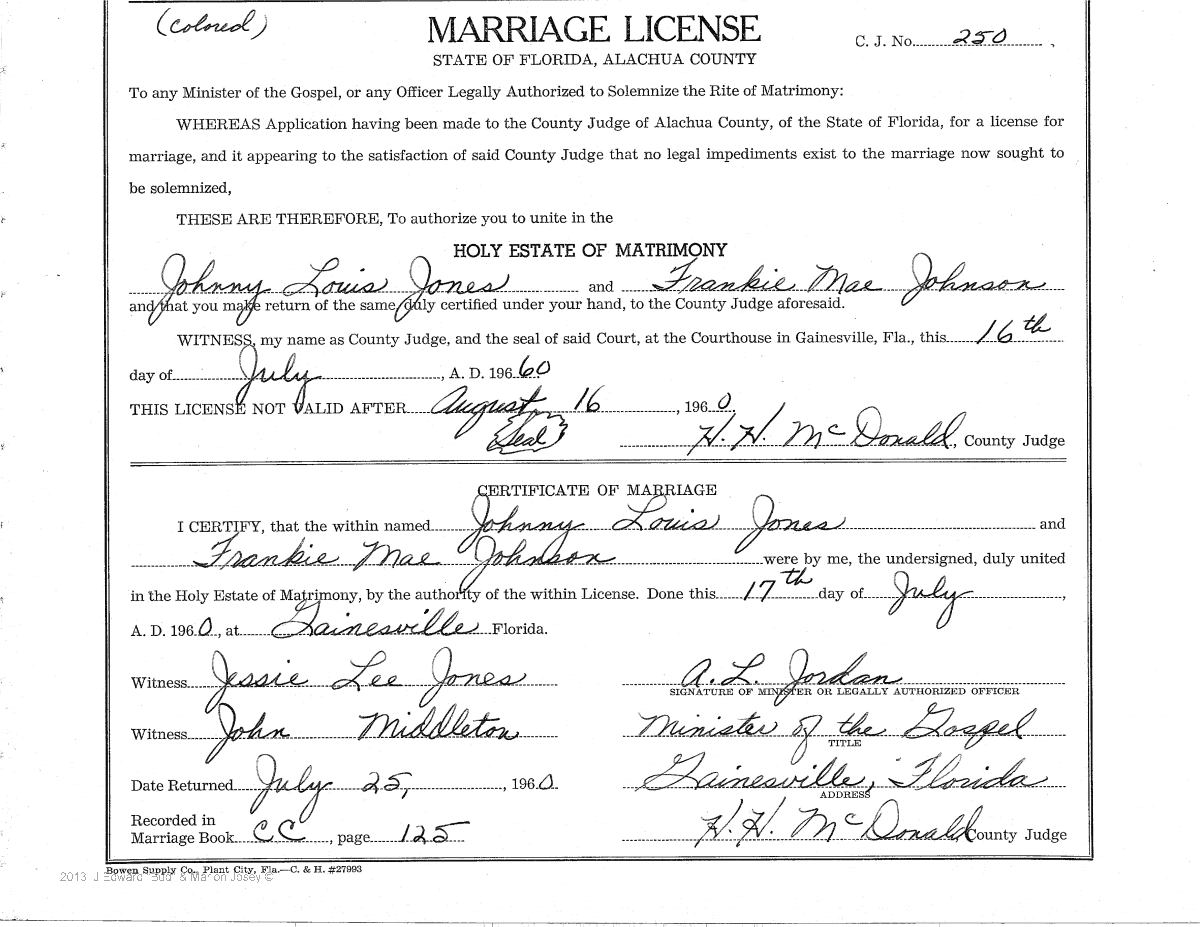 (colored)
MARRIAGE LICENSE
C. J. No. 250
STATE OF FLORIDA, ALACHUA COUNTY
To any Minister of the Gospel, or any Officer Legally Authorized to Solemnize the Rite of Matrimony:
WHEREAS Application having been made to the County Judge of Alachua County, of the State of Florida, for a license for
marriage, and it appearing to the satisfaction of said County Judge that no legal impediments exist to the marriage now sought to
be solemnized,
THESE ARE THEREFORE, To authorize you to unite in the
HOLY ESTATE OF MATRIMONY
Johnny Louis Jones and Frankie Mae Johnson
and that you make return of the same duly certified under your hand, to the County Judge aforesaid.
WITNESS, my name as County Judge, and the seal of said Court, at the Courthouse in Gainesville, Fla., this 16th
day of July, A. D. 196 60
THIS LICENSE NOT VALID AFTER August 16, 1960.
Seal H. H. McDonald, County Judge
CERTIFICATE OF MARRIAGE
I CERTIFY, that the within named Johnny Louis Jones and
Frankie Mae Johnson were by me, the undersigned, duly united
in the Holy Estate of Matrimony, by the authority of the within License. Done this 17th day of July,
A. D. 1960, at Gainesville Florida.
Witness Jessie Lee Jones A. L. Jordan
SIGNATURE OF MINISTER OR LEGALLY AUTHORIZED OFFICER
Witness John Middleton Minister of the Gospel
TITLE
Date Returned July 25, , 1960. Gainesville, Florida
ADDRESS
Recorded in
Marriage Book CC, page 125 H. H. McDonald County Judge
Bowen Supply Co., Plant City, Fla.—C. & H. #27993
2013 J Edward "Bud" & Marion Josey ©